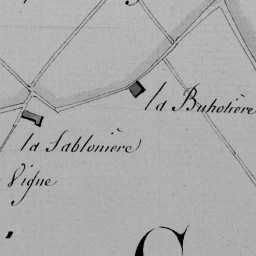 la Buholière
la Sablonière
Vigne
C